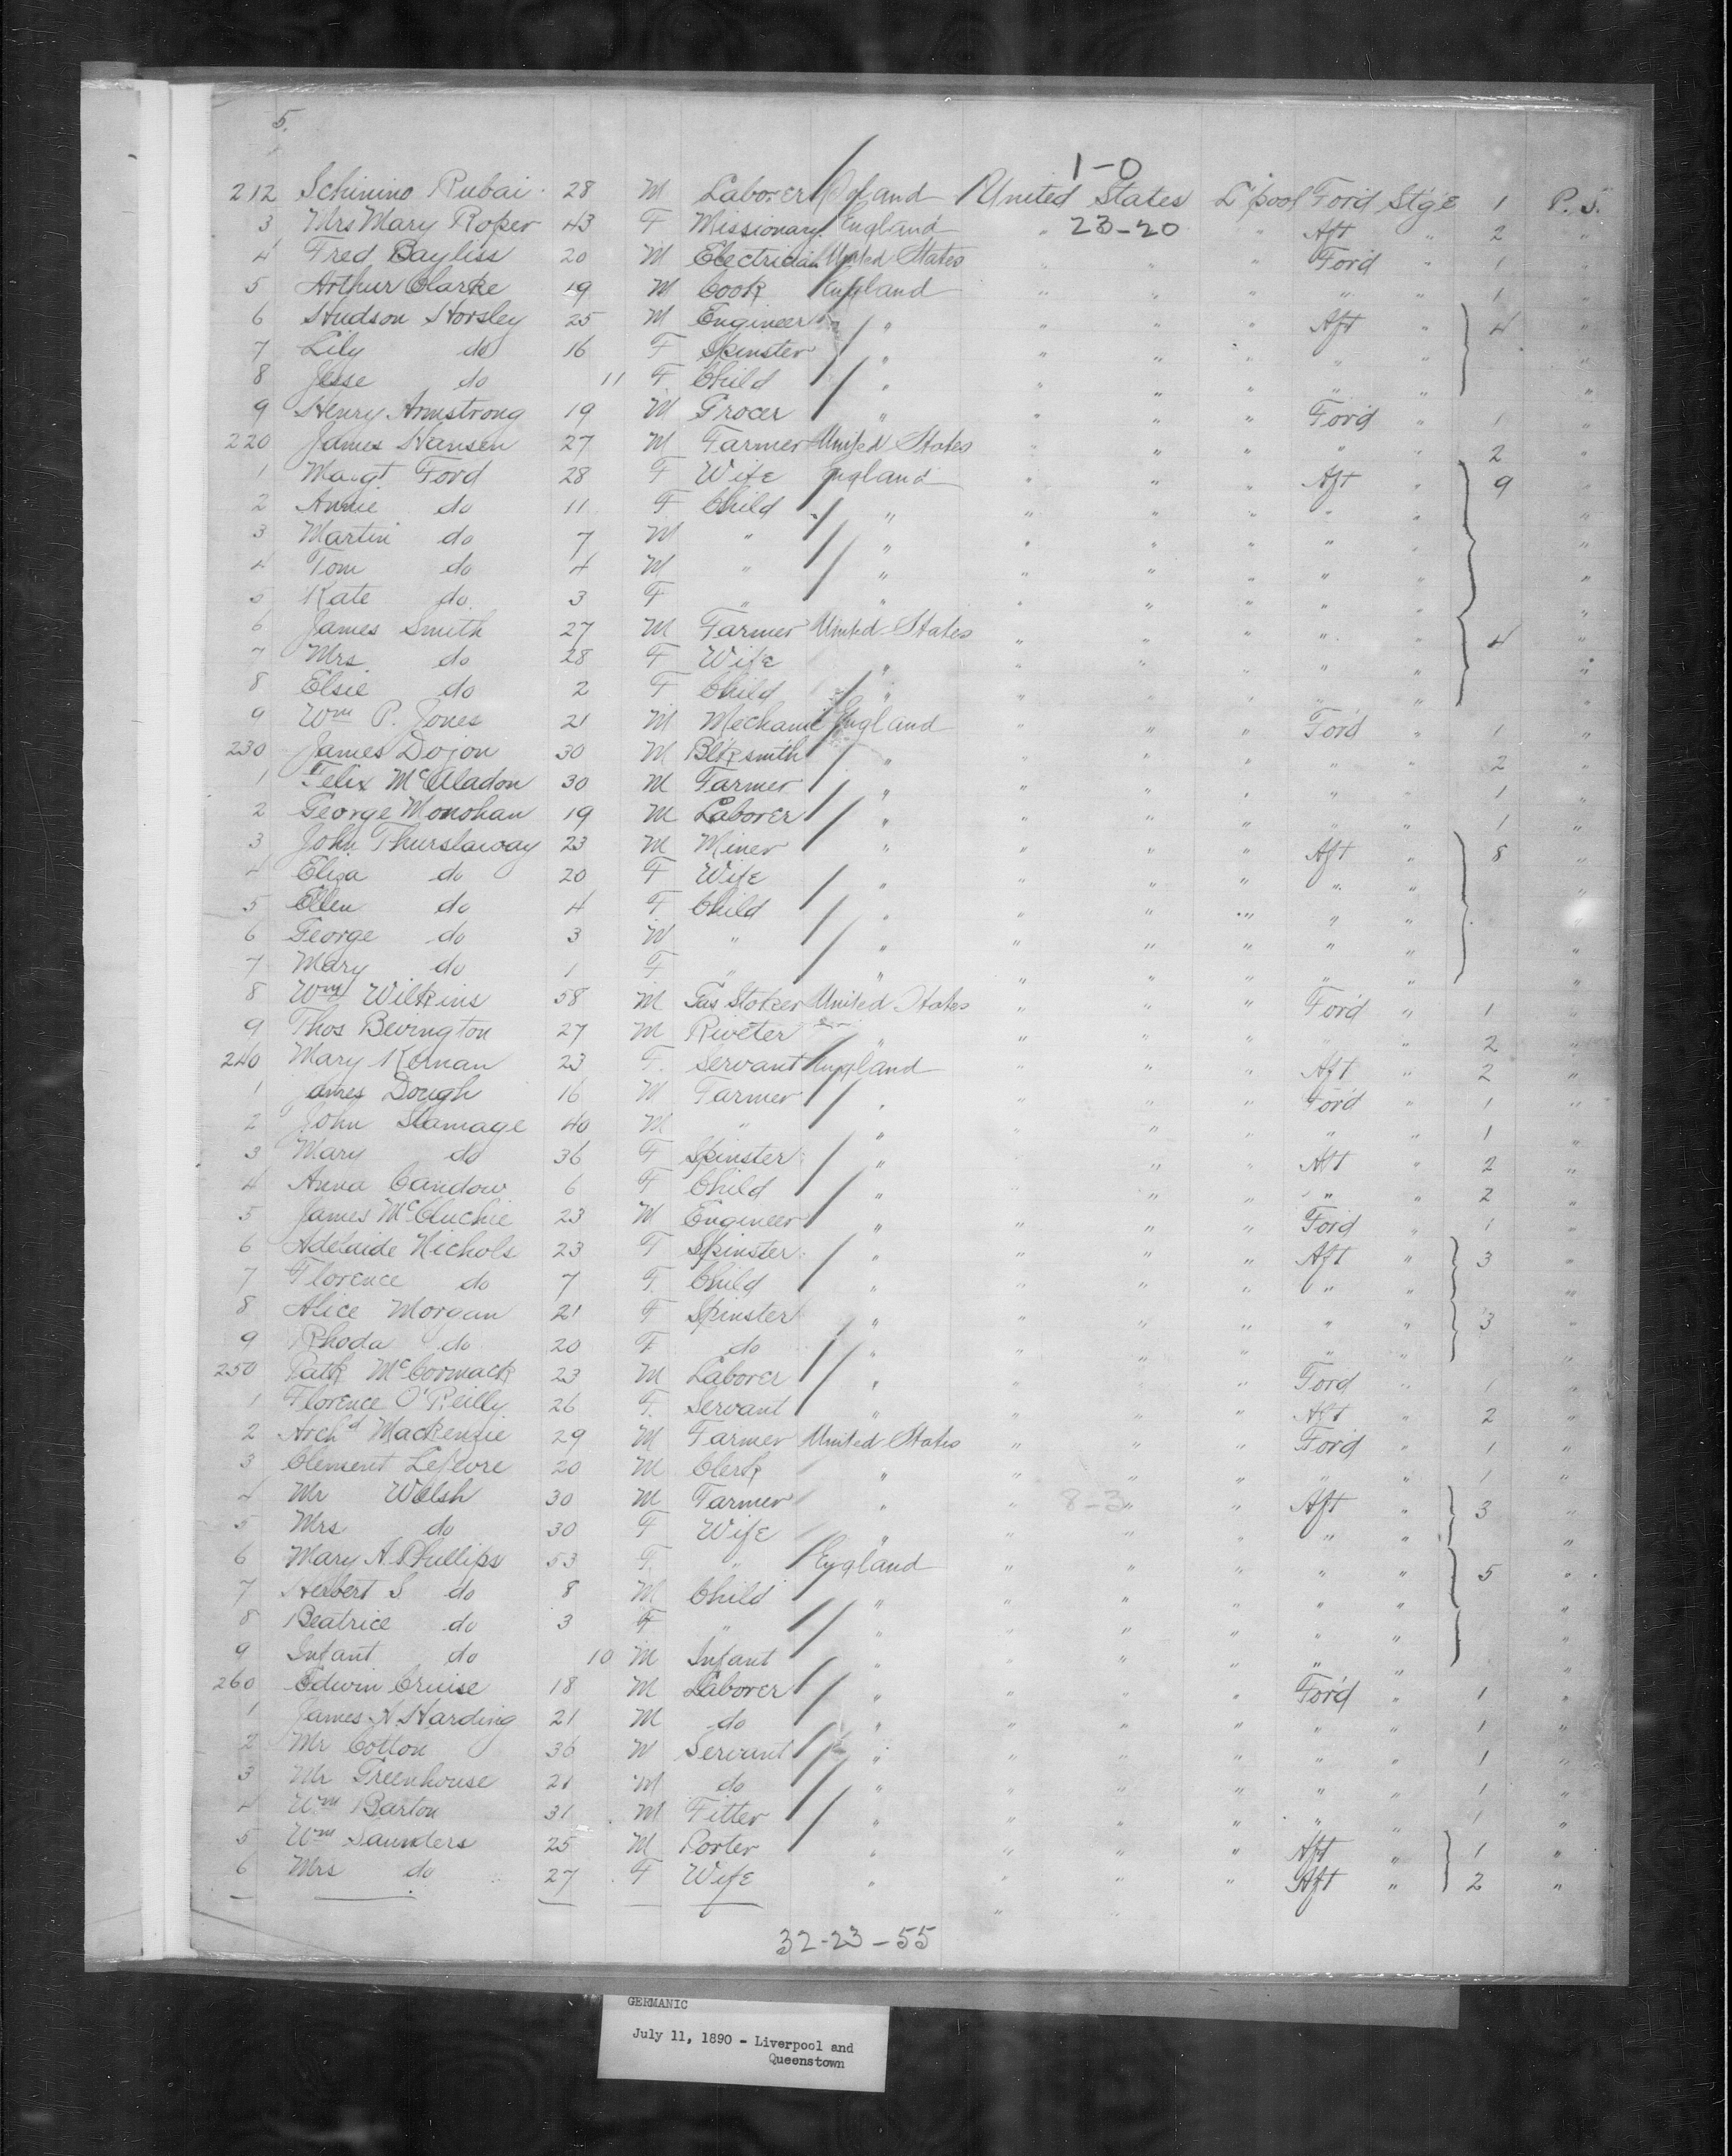 5.
1-0
212 Schinino Rubai 28 M Laborer United States L'pool Ford Stge 1 P.S.
3 Mrs Mary Roper 43 F Missionary England " 23-20 " Aft " 2 "
4 Fred Bayliss 20 M Electrician United States " " " Ford " 1 "
5 Arthur Clarke 19 M Cook England " " " " " 1 "
6 Hudson Horsley 25 M Engineer " " " " Aft " 4 "
7 Lily do 16 F Spinster " " " " " " "
8 Jesse do 11 F Child " " " " " " "
9 Henry Armstrong 19 M Grocer " " " " Ford " 1 "
220 James Hansen 27 M Farmer United States " " " " " 2 "
1 Margt Ford 28 F Wife England " " " Aft " 9 "
2 Annie do 11 F Child " " " " " " "
3 Martin do 7 M " " " " " " " "
4 Tom do 4 M " " " " " " " "
5 Kate do 3 F " " " " " " " "
6 James Smith 27 M Farmer United States " " " " " 4 "
7 Mrs do 28 F Wife " " " " " " "
8 Elsie do 2 F Child " " " " " " "
9 Wm P. Jones 21 M Mechanic England " " " Ford " 1 "
230 James Dojon 30 M Blksmith " " " " " " 2 "
1 Felix McAladon 30 M Farmer " " " " " " 1 "
2 George Monohan 19 M Laborer " " " " " " 1 "
3 John Thurslaway 23 M Miner " " " " Aft " 8 "
4 Eliza do 20 F Wife " " " " " " "
5 Ellen do 4 F Child " " " " " "
6 George do 3 M " " " " " " " "
7 Mary do 1 F " " " " " " " "
8 Wm Wilkins 58 M Gas Stoker United States " " " Ford " 1 "
9 Thos Bevington 27 M Riveter " " " " " " 2 "
240 Mary Kernan 23 F. Servant England " " " Aft " 2 "
1 James Dough 16 M Farmer " " " " Ford " 1 "
2 John Slamage 40 M " " " " " " " 1 "
3 Mary do 36 F Spinster " " " Aft " 2 "
4 Anna Candow 6 F Child " " " " " 2 "
5 James McCluchie 23 M Engineer " " " " Ford " 1 "
6 Adelaide Nichols 23 F Spinster " " " " Aft " 3 "
7 Florence do 7 F. Child " " " " " " "
8 Alice Morgan 21 F Spinster " " " " " " 3 "
9 Rhoda do 20 F do " " " " " " "
250 Patk McCormack 23 M Laborer " " " " Ford " 1 "
1 Florence O'Reilly 26 F. Servant " " " " Aft " 2 "
2 Archd Mackenzie 29 M Farmer United States " " " Ford " 1 "
3 Clement Lefevre 20 M Clerk " " " " " " 1 "
4 Mr Welsh 30 M Farmer " " 8-3 " " Aft " 3 "
5 Mrs do 30 F Wife " " " " " " "
6 Mary A. Phillips 53 F. " England " " " " " 5 "
7 Herbert S do 8 M Child " " " " " " "
8 Beatrice do 3 F " " " " " " " "
9 Infant do 10 M Infant " " " " " " "
260 Edwin Cruise 18 M Laborer " " " " Ford " 1 "
1 James A Harding 21 M do " " " " " " 1 "
2 Mr Cotton 36 M Servant " " " " " " 1 "
3 Mr Greenhouse 21 M do " " " " " " 1 "
4 Wm Barton 31 M Fitter " " " " " " 1 "
5 Wm Saunders 25 M Porter " " " " Aft " 1 "
6 Mrs do 27 F Wife " " " " Aft " 2 "
32-23-55
GERMANIC
July 11, 1890 - Liverpool and
Queenstown